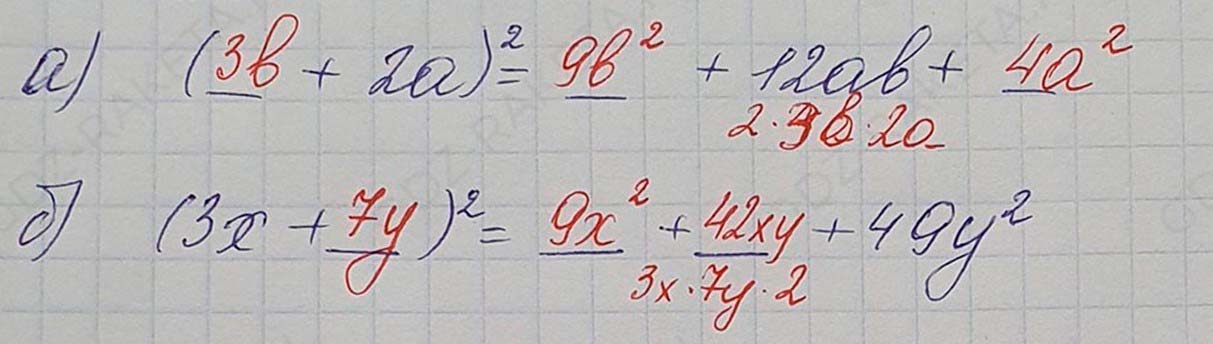 а) (3b + 2a)² = 9b² + 12ab + 4a²
2·3b·2a
б) (3x + 7y)² = 9x² + 42xy + 49y²
3x·7y·2